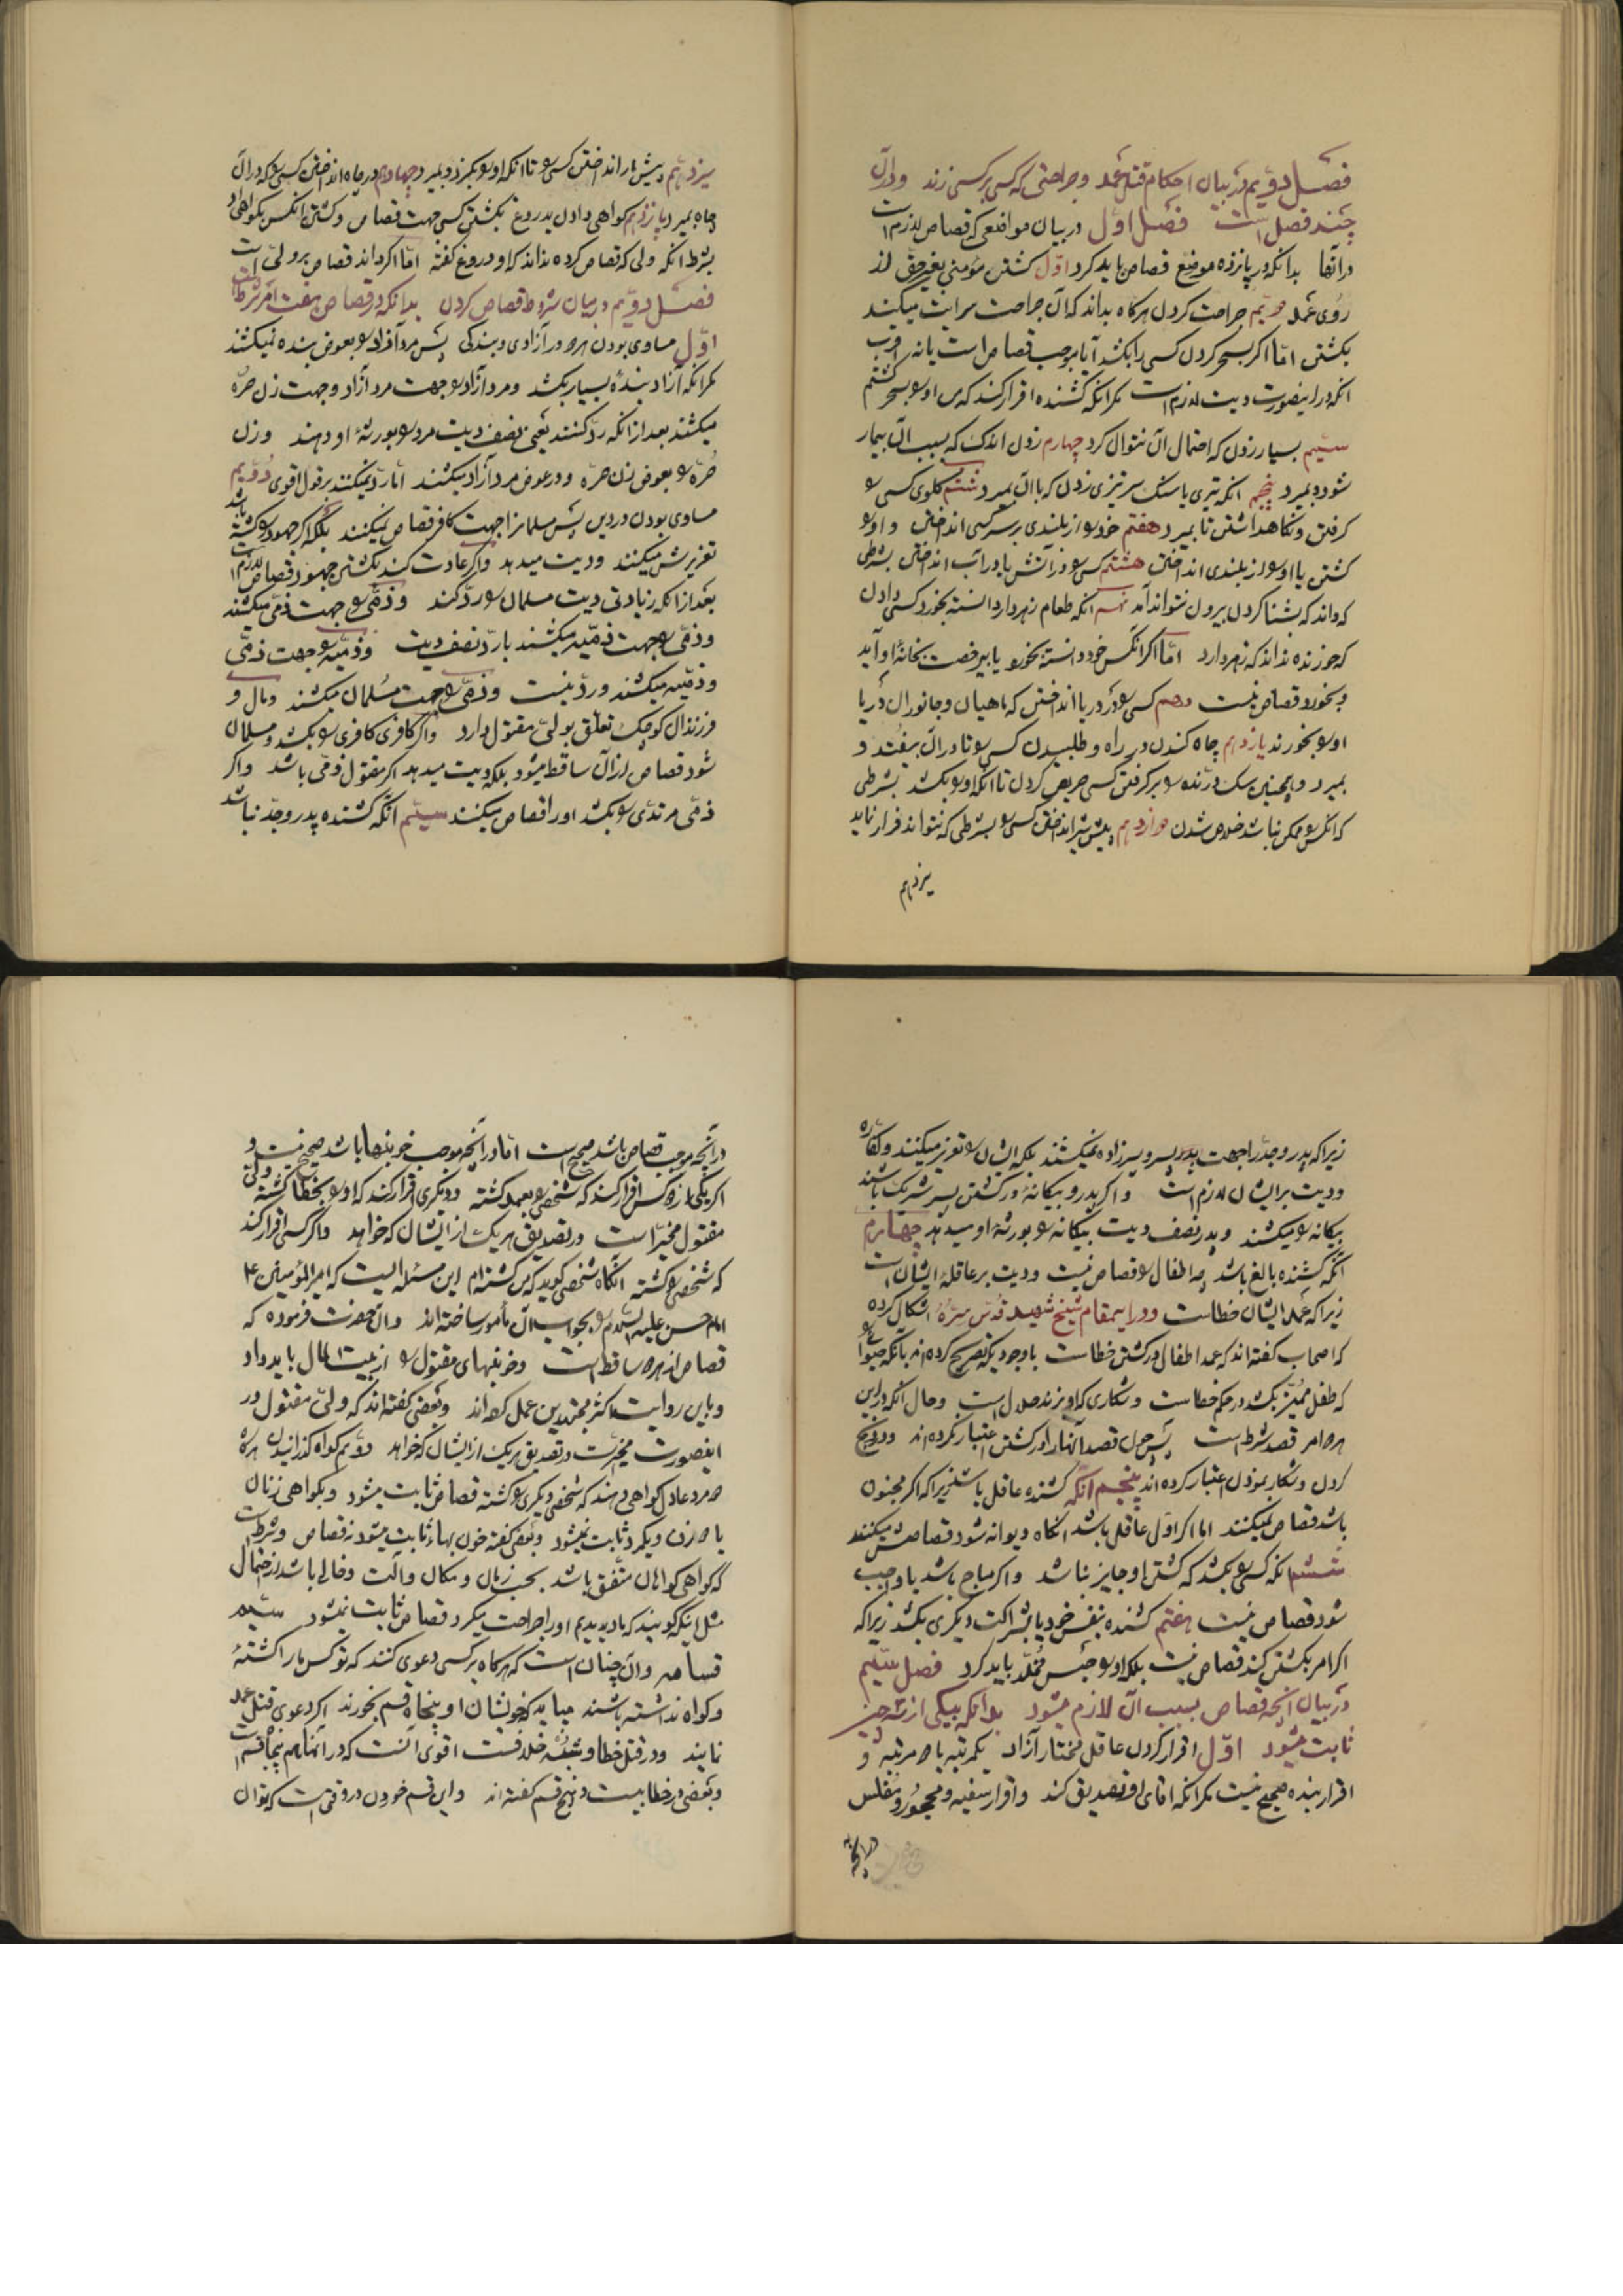 فصل دویم در بیان احکام قتل عمد و جراحتی که کسی بر کسی زند و در آن
چند فصل است فصل اول در بیان مواقعی که قصاص لازم است
در آنها بدانکه در پانزده موضع قصاص باید کرد اول کشتن مؤمنی بغیر حق از
روی عمد دویم جراحت کردن هرگاه بداند که آن جراحت سرایت میکند
بکشتن اما اگر بسحر کردن کسی را بکشد آیا موجب قصاص است یا نه اقرب
آنکه در اینصورت دیت لازم است مگر انکه کشنده اقرار کند که من او را بسحر کشتم
سیم بسیار زدن که احتمال آن نتوان کرد چهارم زدن اندک که بسبب آن بیمار
شود و بمیرد پنجم انکه تیری یا سنک سر تیزی زدن که با آن بمیرد ششم کلوی کسی را
کرفتن و نکاهداشتن تا بمیرد هفتم خود را از بلندی بر سر کسی انداختن و او را
کشتن یا او را از بلندی انداختن هشتم کسی را در آتش یا در آب انداختن بشرطی
که داند که بشنا کردن بیرون نتواند آمد نهم انکه طعام زهردار دانسته بخورد کسی دادن
که خورنده نداند که زهر دارد اما اگر انکس خود دانسته بخورد یا بیرخصت بخانهٔ او آید
و بخورد قصاص نیست دهم کسی را در دریا انداختن که ماهیان و جانوران دریا
او را بخورند یازدهم چاه کندن در راه و طلبیدن کسی را تا در آن بیفتد و
بمیرد و همچنین سک درنده را بر کرفتن کسی حریص کردن تا آنکه او را بکشد بشرطی
که انکس را ممکن نباشد خلاص شدن دوازدهم پیش شیر انداختن کسی را بشرطی که نتواند فرار نماید
سیزدهم
سیزدهم پیش مار انداختن کسی را تا انکه او را بگزد و بمیرد چهاردهم در چاه انداختن کسی را که در آن
چاه بمیرد پانزدهم کواهی دادن بدروغ بکشتن کسی جهت قصاص و کشتن انکس بکواهی او
بشرط انکه ولی که قصاص کرده نداند که او دروغ کفته اما اکر داند قصاص بر ولی است
فصل دویم در بیان شروط قصاص کردن بدانکه در قصاص هفت امر شرطست
اول مساوی بودن هر دو در آزادی و بندکی پس مرد آزاد را بعوض بنده نمیکشند
مکر انکه آزاد بندهٔ بسیار بکشد و مرد آزاد را جهت مرد آزاد و جهت زن حره
میکشند بعد از انکه رد کنند یعنی نصف دیت مرد را بورثهٔ او دهند و زن
حره را بعوض زن حره و در عوض مرد آزاد میکشند اما رد نمیکنند بر قول اقوی دویم
مساوی بودن در دین پس مسلمانرا جهت کافر قصاص نمیکنند بلکه اکر جهود را کشته باشد
تعزیرش میکنند و دیت میدهد و اکر عادت کند بکشتن جهود قصاص لازم است
بعد از انکه زیادتی دیت مسلمان را رد کند و ذمی را جهت ذمی میکشند
و ذمی را جهت ذمیه میکشند با رد نصف دیت و ذمیه را جهت ذمی
و ذمیه میکشند و رد نیست و ذمی را جهت مسلمان میکشند و مال و
فرزندان کوچک تعلق بولی مقتول دارد و اکر کافری کافری را بکشد و مسلمان
شود قصاص از آن ساقط میشود بلکه دیت میدهد اکر مقتول ذمی باشد و اکر
ذمی مرتدی را بکشد او را قصاص میکنند سیم انکه کشنده پدر و جد نباشد
زیرا که پدر و جد را جهت پسر و پسرزاده نمیکشند بلکه ایشان را تعزیر میکنند و کفاره
و دیت بر ایشان لازم است و اکر پدر و بیکانهٔ در کشتن پسر شریک باشند
بیکانه را میکشند و پدر نصف دیت بیکانه را بورثهٔ او میدهد چهارم
انکه کشنده بالغ باشد چه اطفال را قصاص نیست و دیت بر عاقلهٔ ایشان است
زیرا که عمد ایشان خطاست و در اینمقام شیخ شهید قدس سره اشکال کرده
که اصحاب کفته‌اند که عمد اطفال در کشتن خطاست با وجودیکه تصریح کرده‌اند بانکه حیوانی را
که طفل ممیز بکشد در حکم خطاست و شکاری که او بزند حلال است و حال انکه در این
هر دو امر قصد شرط است پس چون قصد آنها را در کشتن اعتبار نکرده‌اند و در ذبح
کردن و شکار نمودن اعتبار کرده‌اند پنجم انکه کشنده عاقل باشد زیرا که اکر مجنون
باشد قصاص نمیکنند اما اکر اول عاقل باشد انکاه دیوانه شود قصاصش میکنند
ششم انکه کسی را بکشد که کشتن او جایز نباشد و اکر مباح باشد یا واجب
شود قصاص نیست هفتم کشنده بنفس خود یا بشراکت دیکری بکشد زیرا که
اکر امر بکشتن کند قصاص نیست بلکه او را حبس مخلد باید کرد فصل سیم
در بیان آنچه قصاص بسبب آن لازم میشود بدانکه بیکی از سه چیز
ثابت میشود اول اقرار کردن عاقل مختار آزاد یکمرتبه یا دو مرتبه و
اقرار بنده صحیح نیست مکر انکه اقای او تصدیق کند و اقرار سفیه و محجور و مفلس
در آنچه
در آنچه موجب قصاص باشد صحیح است اما در آنچه موجب خونبها باشد صحیح نیست و
اکر یکی از دو کس اقرار کند که شخصی را بعمد کشته و دیکری اقرار کند که او را بخطا کشته ولی
مقتول مخیر است در تصدیق هر یک از ایشان که خواهد و اکر کسی اقرار کند
که شخصی را کشته انکاه شخصی کوید که من کشته‌ام این مسئله ایست که امیر المؤمنین ع
امام حسن علیه السلام را بجواب آن مأمور ساخته‌اند و آن حضرت فرموده که
قصاص از هر دو ساقط است و خونبهای مقتول را از بیت المال باید داد
و باین روایت اکثر مجتهدین عمل کرده‌اند و بعضی کفته‌اند که ولی مقتول در
اینصورت مخیر است در تصدیق هر یک از ایشان که خواهد دویم کواه کذرانیدن هرکاه
دو مرد عادل کواهی دهند که شخصی دیکری را کشته قصاص ثابت میشود و بکواهی زنان
یا دو زن و یکمرد ثابت نمیشود و بعضی کفته خون بهاء ثابت میشود نه قصاص و شرطست
که کواهی کواهان متفق باشد بحسب زمان و مکان و آلت و خالی باشد از احتمال
مثل اینکه کویند که ما دیدیم او را جراحت میکرد قصاص ثابت نمیشود سیم
قسامه و آن چنان است که هرکاه بر کسی دعوی کنند که تو کس ما را کشتهٔ
و کواه نداشته باشند میباید که خویشان او پنجاه قسم بخورند اکر دعوی قتل عمد
نمایند و در قتل خطا و شبیه خلافست اقوی آنست که در آنها هم پنجاه قسم است
و بعضی در خطا بیست و پنج قسم کفته‌اند و این قسم خوردن در وقتی است که توان